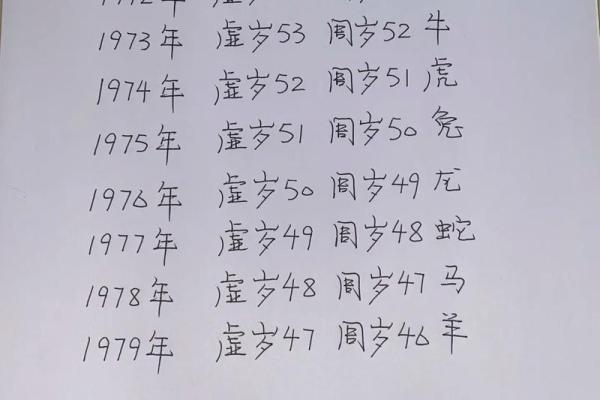 1973年 虚岁53 周岁52 牛
1974年 虚岁52 周岁51 虎
1975年 虚岁51 周岁50 兔
1976年 虚岁50 周岁49 龙
1977年 虚岁49 周岁48 蛇
1978年 虚岁48 周岁47 马
1979年 虚岁47 周岁46 羊